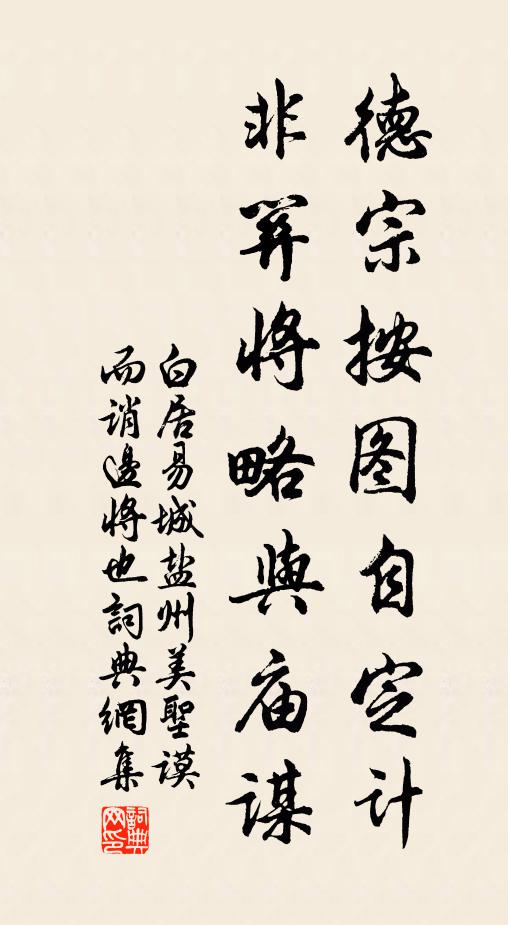 德宗按图自定计
非関将略與庙谋
白居易城盐州美聖谟
而诮邊将也詞典網集
詞典
网印